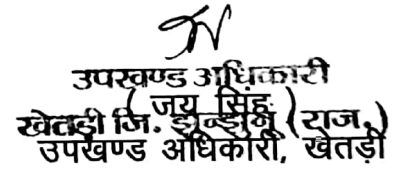 उपखण्ड अधिकारी
( जय सिंह )
खेतड़ी जि. झुन्झुनू (राज.)
उपखण्ड अधिकारी, खेतड़ी